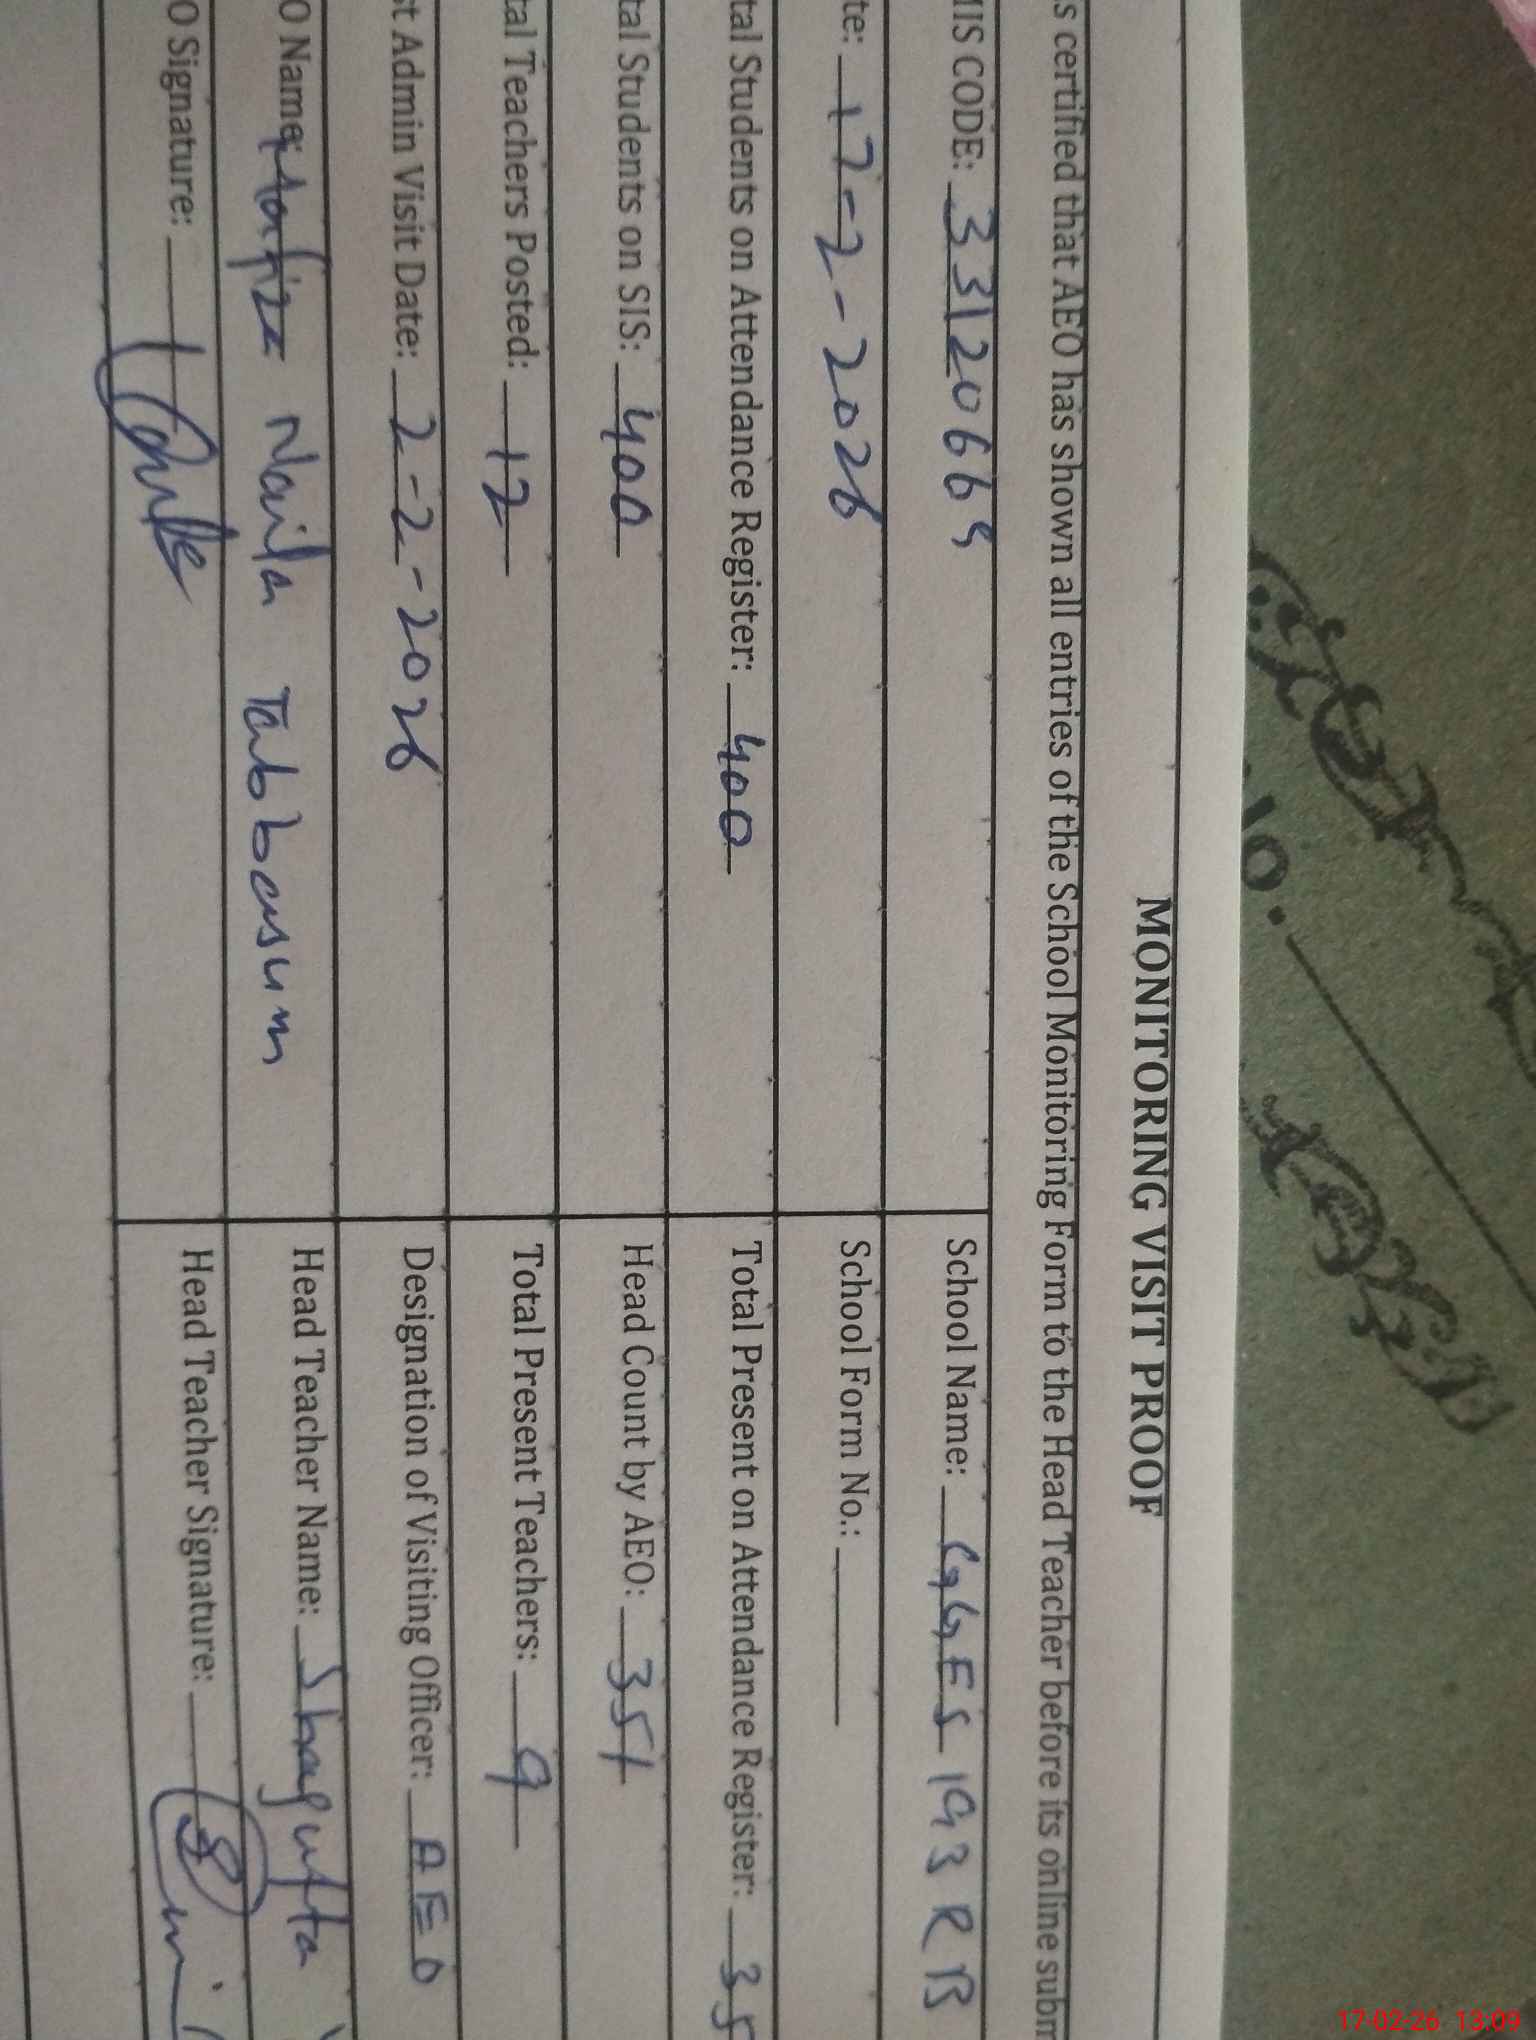 MONITORING VISIT PROOF
s certified that AEO has shown all entries of the School Monitoring Form to the Head Teacher before its online subm
MIS CODE: 33120669 School Name: GGES 193 RB
te: 17-2-2026 School Form No.:
tal Students on Attendance Register: 400 Total Present on Attendance Register: 35
tal Students on SIS: 400 Head Count by AEO: 351
tal Teachers Posted: 12 Total Present Teachers: 9
st Admin Visit Date: 2-2-2026 Designation of Visiting Officer: AEO
O Name: Hafiza Naila Tabbasum Head Teacher Name: Shagufta
O Signature: Head Teacher Signature:
17-02-26 13:09